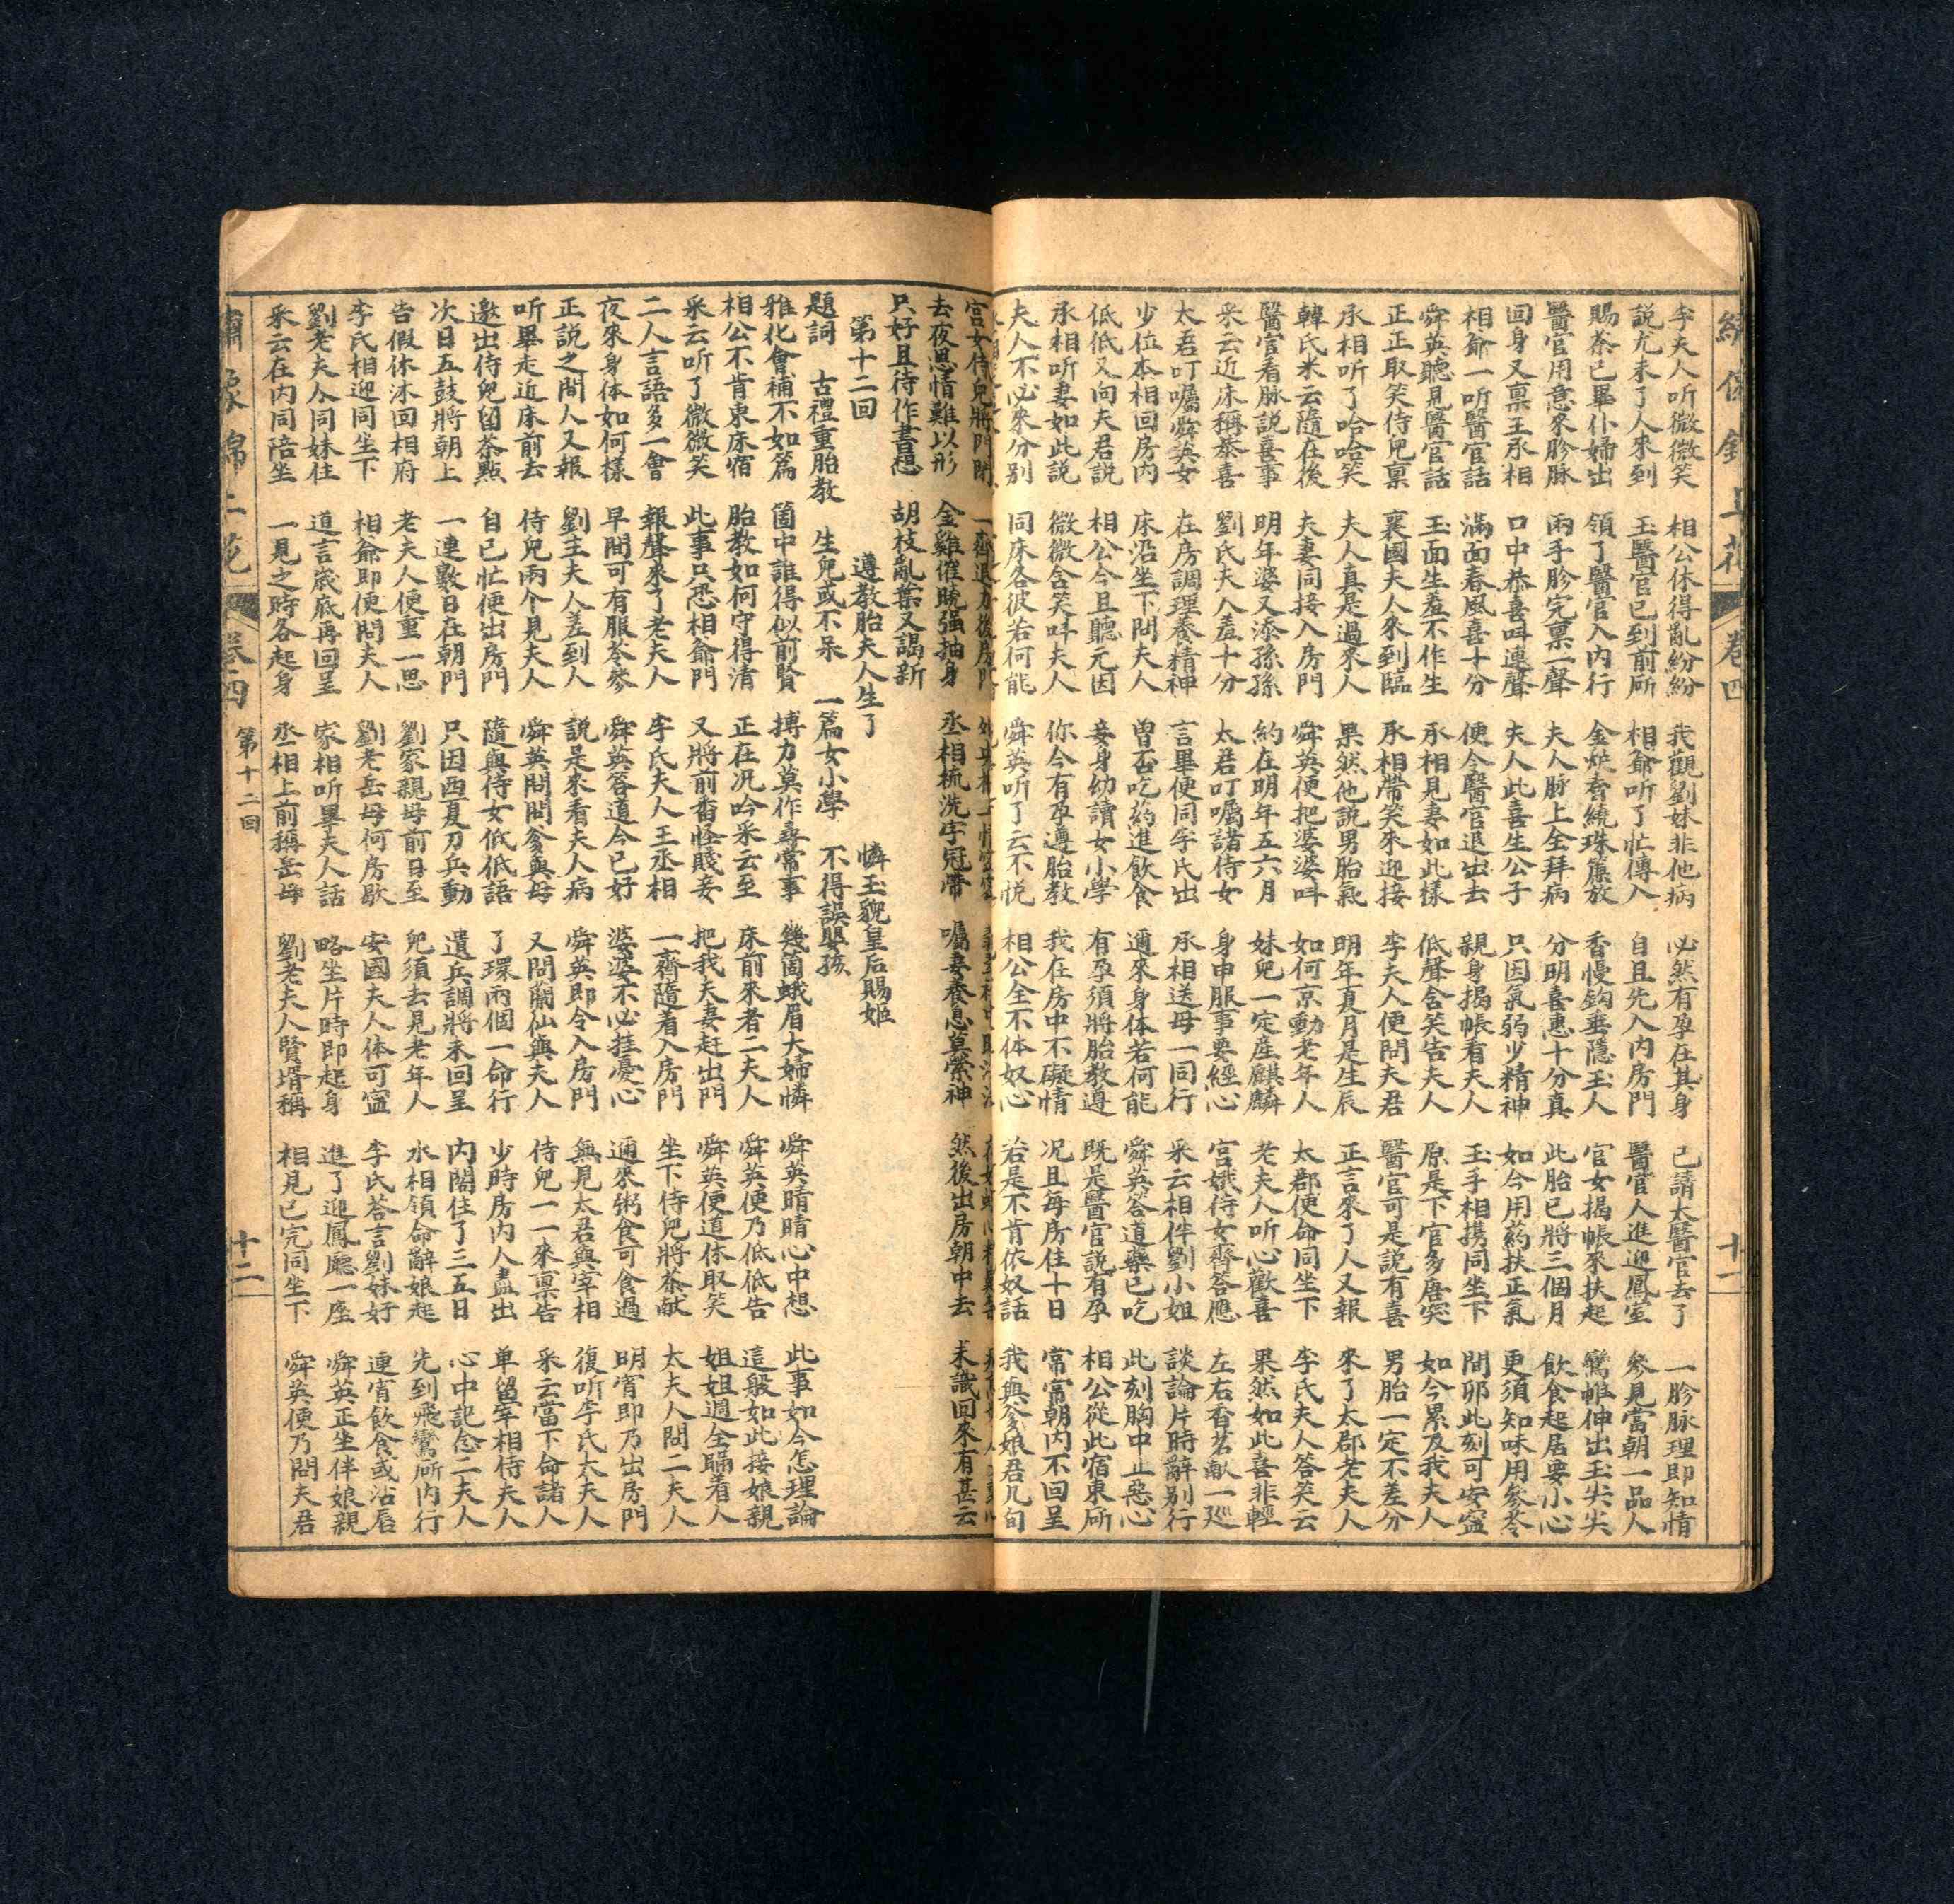 卷四 十一
李夫人听微微笑 相公休得亂紛紛 我觀劉妹非他病 必然有孕在其身 已請太醫官去了 一胗脉理即知情
説尤未了人來到 王醫官已到前厛 相爺听了忙傳入 自且先入内房門 醫官人進迎鳳室 參見當朝一品人
賜茶已畢仆婦出 領了醫官入内行 金炉香繞珠簾放 香慢鈎垂隱玉人 官女揭帳來扶起 鸞帷伸出玉尖尖
醫官用意來胗脉 兩手胗完禀一聲 夫人脉上全拜病 分明喜惠十分真 此胎已將三個月 飲食起居要小心
回身又禀王丞相 口中恭喜呌連聲 夫人此喜生公子 只因氣弱少精神 如今用药扶正氣 更須知味用參苓
相爺一听醫官話 滿面春風喜十分 便令醫官退出去 親身揭帳看夫人 玉手相携同坐下 問夘此刻可安寍
舜英聽見醫官話 玉面生羞不作生 承相見妻如此樣 低聲含笑告夫人 原是下官多唐突 如今累及我夫人
正正取笑侍兒禀 襄國夫人來到臨 承相帶笑來迎接 李夫人便問夫君 醫官可是説有喜 男胎一定不差分
承相听了哈哈笑 夫人真是過來人 果然他説男胎氣 明年夏月是生辰 正言來了人又報 來了太郡老夫人
韓氏米云隨在後 夫妻同接入房門 舜英便把婆婆呌 如何京動老年人 太郡便命同坐下 李氏夫人答笑云
醫官看脉説喜事 明年婆又添孫孫 約在明年五六月 妹兒一定産麒麟 老夫人听心歡喜 果然如此喜非輕
采云近床稱恭喜 劉氏夫人羞十分 太君叮囑諸侍女 身申服事要經心 宮娥侍女齊答應 左右香茗献一廵
太君叮囑舜英女 在房調理養精神 言畢便同李氏出 承相送母一同行 采云相伴劉小姐 談論片時辭别行
少位本相回房内 床沿坐下問夫人 曾否吃药進飲食 邇來身体若何能 舜英答道藥已吃 此刻胸中止惡心
低低又向夫君説 相公今且聽元因 妾身幼讀女小學 有孕須將胎教遵 既是醫官説有孕 相公從此宿東厛
承相听妻如此説 微微含笑呌夫人 你今有孕遵胎教 我在房中不礙情 况且每房住十日 常常朝内不回呈
夫人不必來分别 同床各彼若何能 舜英听了云不悦 相公全不体奴心 若是不肯依奴話 我與爹娘君几旬
宮女侍兒將門閉
去夜恩情難以形 金雞催曉强抽身 丞相梳洗宇冠帶 囑妻養息莫縈神 然後出房朝中去 未識回來有甚云
只好且待作書想 胡枝亂葉又謁新
第十二回 遵教胎夫人生了 憐玉貌皇后賜姬
題詞 古禮重胎教 生兒或不呆 一篇女小學 不得誤嬰孩
雅化會補不如篇 箇中誰得似前賢 搏力莫作尋常事 幾箇蛾眉大婦憐 舜英晴晴心中想 此事如今怎理論
相公不肯東床宿 胎教如何守得清 正在况吟采云至 床前來者二夫人 舜英便乃低低告 這般如此接娘親
采云听了微微笑 此事只恐相爺門 又將前畨怪賤妾 把我夫妻赶出門 舜英便道休取笑 姐姐週全瞞着人
二人言語多一會 報聲來了老夫人 李氏夫人王丞相 一齊隨着入房門 坐下侍兒將茶献 太夫人問二夫人
夜來身体如何樣 早間可有服苓參 舜英答道今已好 婆婆不必挂憂心 邇來粥食可食過 明宵即乃出房門
正説之間人又報 劉主夫人差到人 説是來看夫人病 舜英即令入房門 無見太君與宰相 復听李氏太夫人
听畢走近床前去 侍兒兩个見夫人 舜英問問爹與母 又問關仙與夫人 侍兒一一來禀告 采云當下命諸人
邀出侍兒留茶點 自已忙便出房門 隨與侍女低低語 了環兩個一命行 少時房内人盡出 单留宰相侍夫人
次日五鼓將朝上 一連數日在朝門 只因西夏刀兵動 遣兵調將未回呈 内閣住了三五日 心中記念二夫人
告假休沐回相府 老夫人便重一思 劉家親母前日至 兒須去見老年人 氷相領命辭娘起 先到飛鸞厛内行
李氏相迎同坐下 相爺即便問夫人 劉老岳母何房歇 安國夫人体可寍 李氏答言劉妹好 連宵飲食或沾唇
劉老夫人同妹住 道言歲底再回呈 家相听畢夫人話 略坐片時即起身 進了迎鳳廳一座 舜英正坐伴娘親
采云在内同陪坐 一見之時各起身 丞相上前稱岳母 劉老夫人賢壻稱 相見已完同坐下 舜英便乃問夫君
第十二回 十二